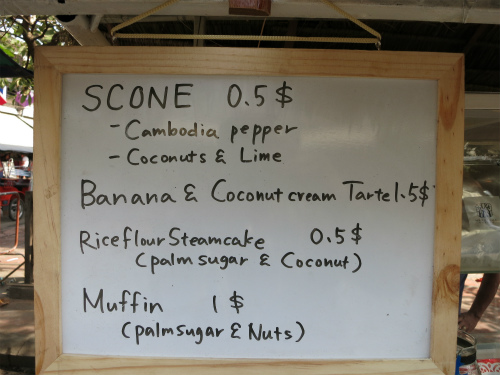 SCONE 0.5$
- Cambodia pepper
- Coconuts & Lime
Banana & Coconut cream Tarte 1.5$
Riceflour Steamcake 0.5$
(palm sugar & Coconut)
Muffin 1$
(palmsugar & Nuts)